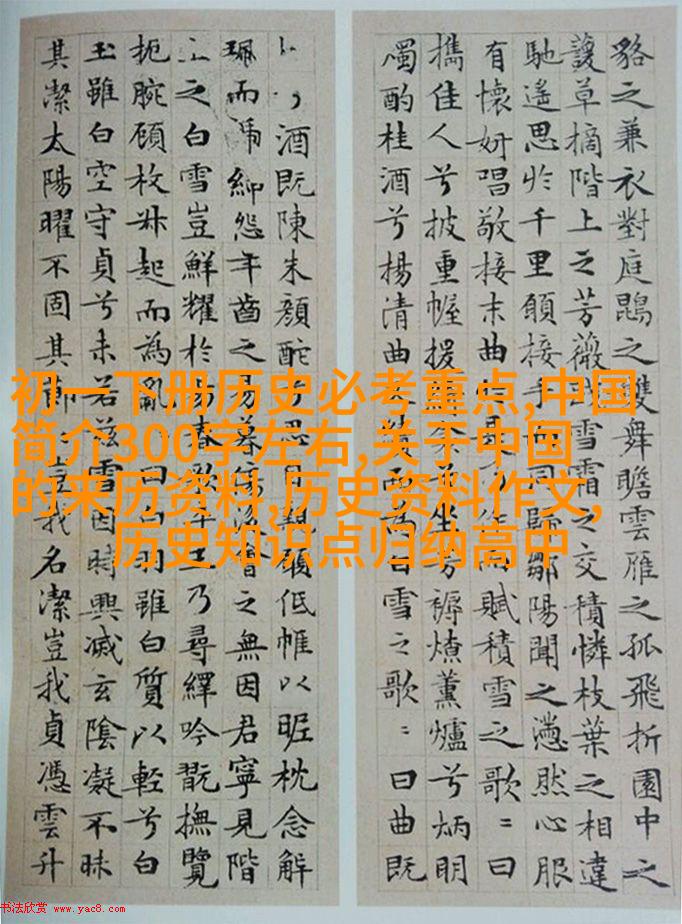 初一下册历史必考重点,中国
简介300字左右,关于中国
的来历资料,历史资料作文,
历史知识点归纳高中
貉之兼衣對庭鵾之雙舞瞻雲雁之孤飛折園中之
萲草摘階上之芳薇踐雪霜之交積憐枝葉之相違
馳遙思於千里願接手而同歸鄒陽聞之懣然心服
有懷妍唱敬接末曲於是乃作而賦積雪之歌=曰
攜佳人兮披重幄援衾兮坐芳褥燎薰爐兮炳明
燭酌桂酒兮揚清曲又續而為白雪之歌=曰曲既
酒既陳朱顏酡兮思自親願低帷以昵枕念解
珮而褫紳怨年齒之易暮傷後會之無因君寧見階
上之白雪豈鮮耀於陽春歌卒王乃尋繹吟翫撫覽
扼腕顧枚叔起而為亂=曰白羽雖白質以輕兮白
玉雖白空守貞兮未若茲雪因時興滅玄陰凝不昧
其潔太陽曜不固其節=豈我名潔豈我貞憑雲升
书法欣赏 www.yac8.com